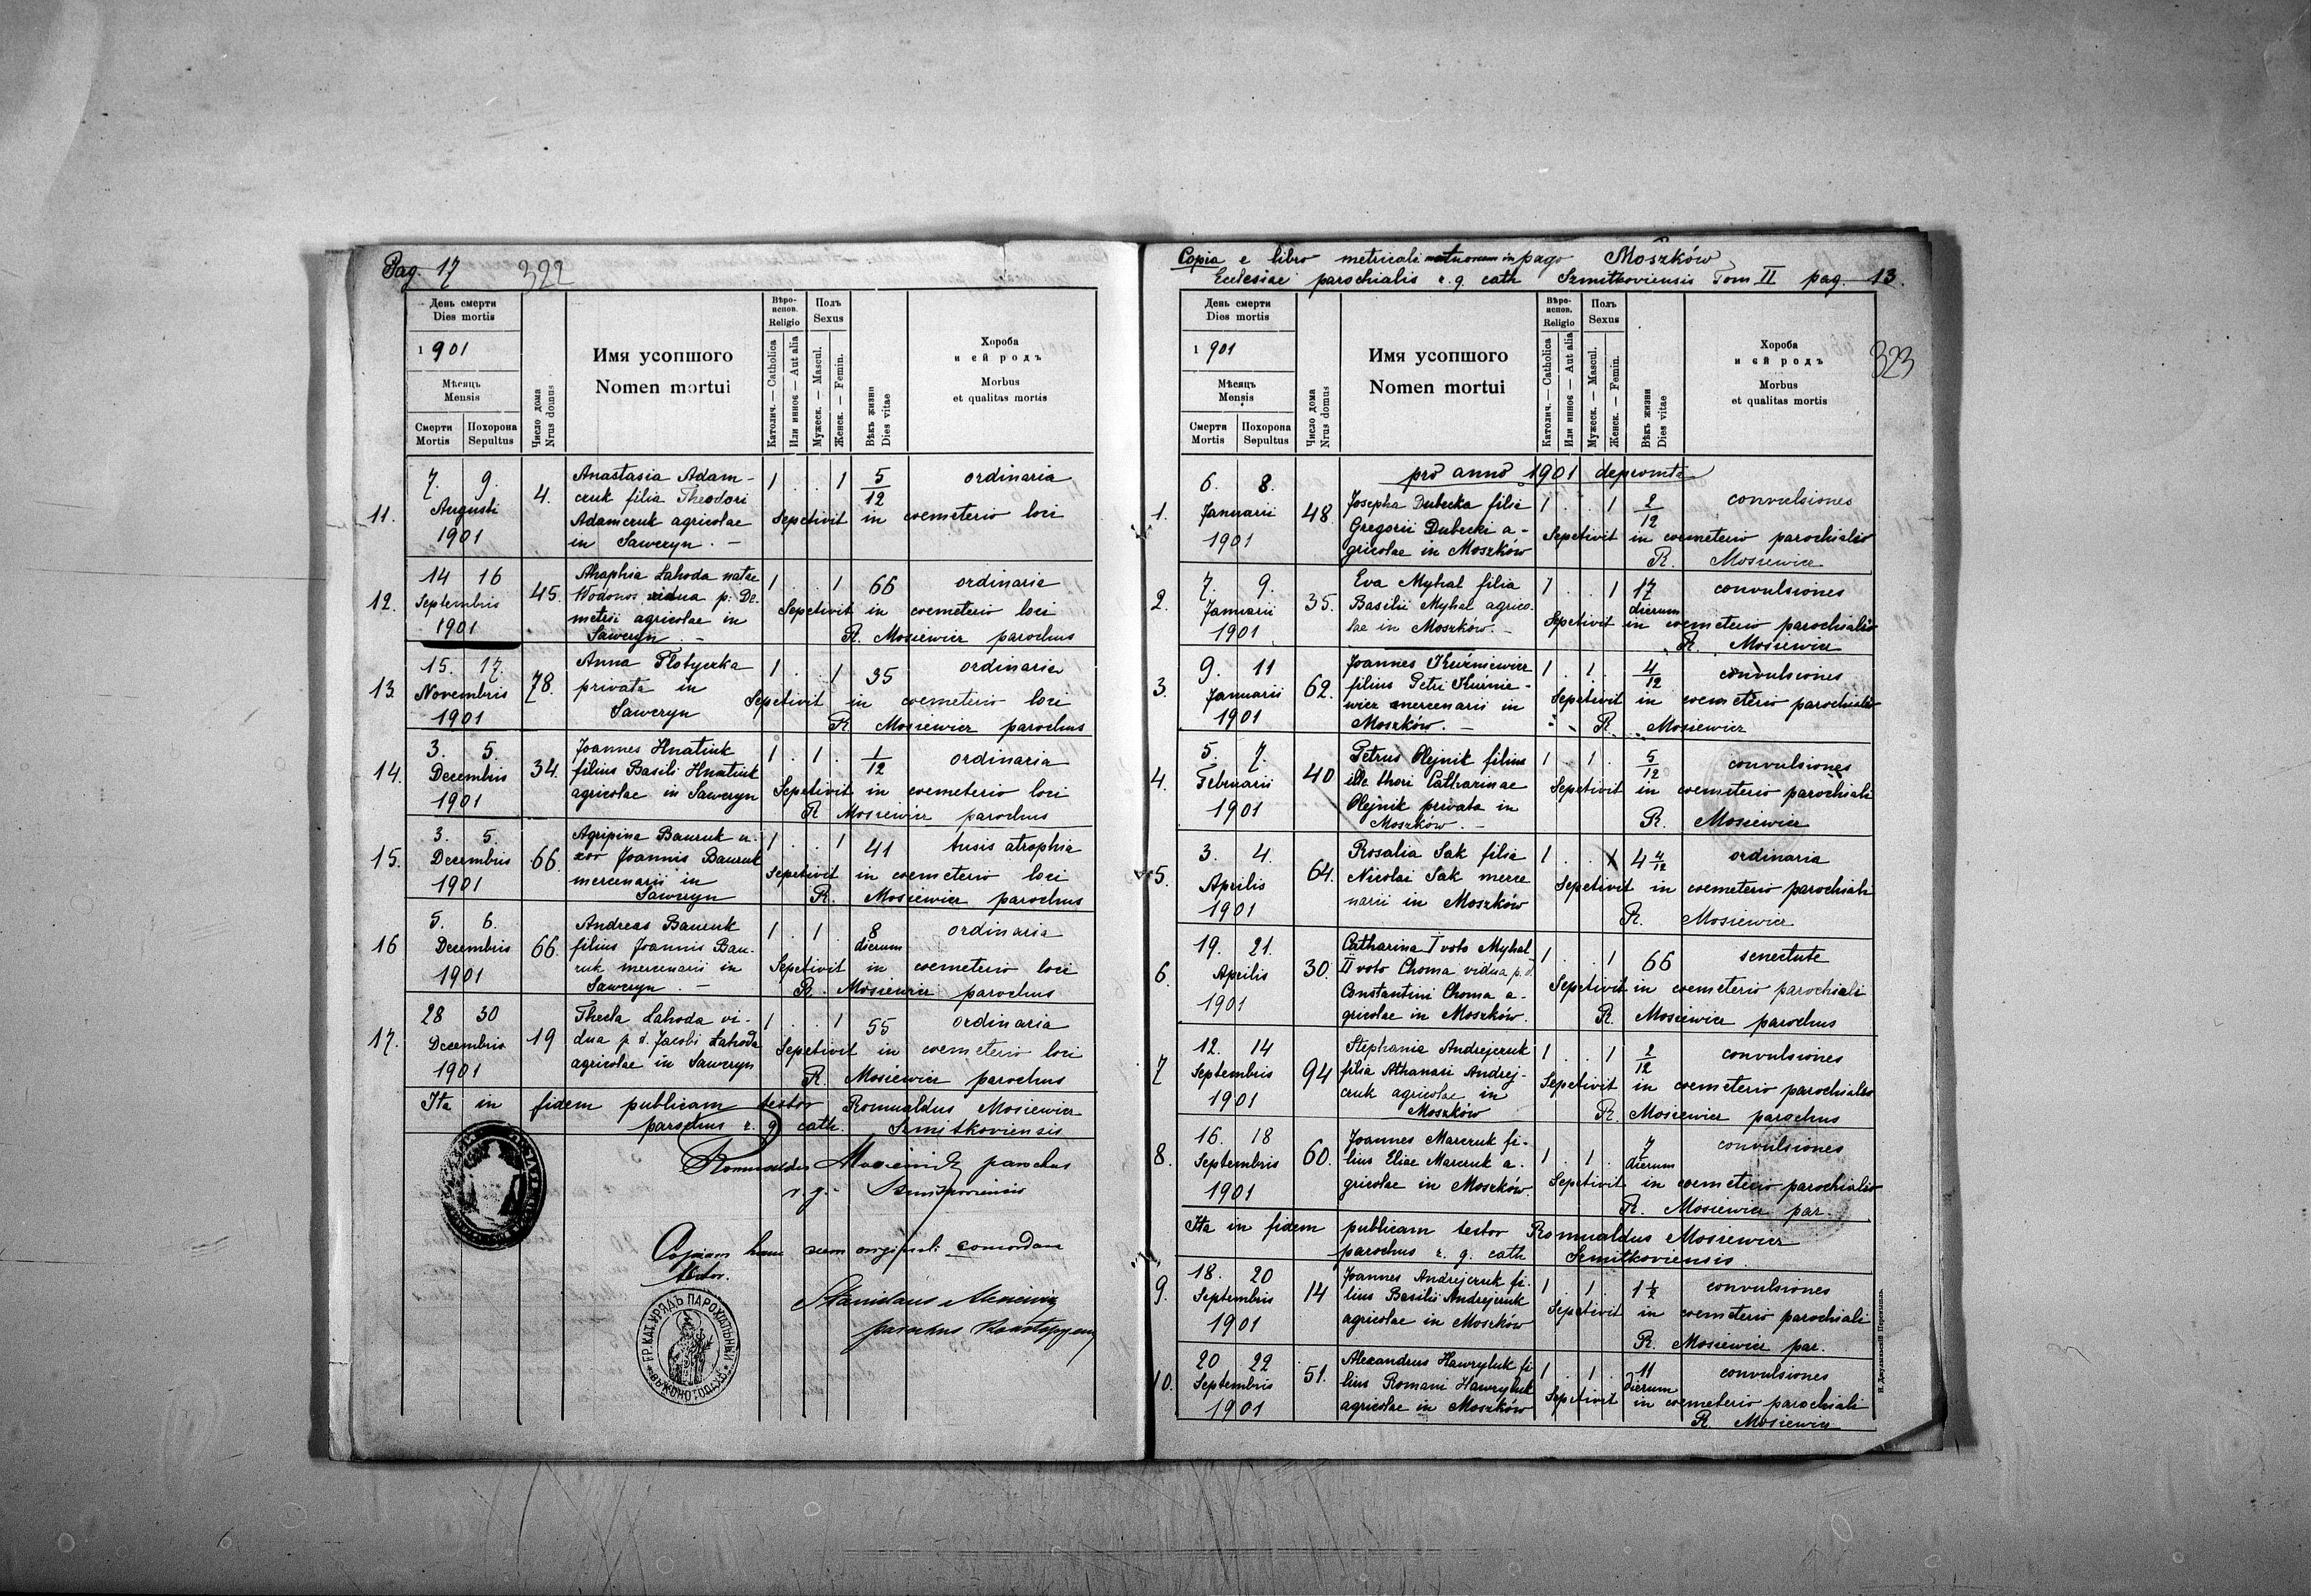 Pag. 17
322
День смерти
Dies mortis
1901
Мѣсяць
Mensis
Смерти
Mortis
Похорона
Sepultus
Число дома
Nrus domus
Имя усопшого
Nomen mortui
Вѣро-
испов.
Religio
Католич. — Catholica
Или инноє — Aut alia
Полъ
Sexus
Мужеск. — Mascul.
Женск. — Femin.
Вѣкъ жизни
Dies vitae
Хороба
и єй родъ
Morbus
et qualitas mortis
11. 7. 9. Augusti 1901 4.
Anastasia Adam-
czuk filia Theodori
Adamczuk agricolae
in Saweryn. —
1 . . 1 5/12 ordinaria
Sepelivit in coemeterio loci
12. 14 16 Septembris 1901 45.
Ahaphia Łahoda natae
Wodonos vidua p. De-
metrii agricolae in
Saweryn. —
1 . . 1 66 ordinaria
Sepelivit in coemeterio loci
R. Mosiewicz parochus
13. 15. 17. Novembris 1901 78.
Anna Płotyczka
privata in
Saweryn
1 . . 1 35 ordinaria
Sepelivit in coemeterio loci
R. Mosiewicz parochus
14. 3. 5. Decembris 1901 34.
Joannes Hnatiuk
filius Basili Hnatiuk
agricolae in Saweryn
1 . 1 . 1/12 ordinaria
Sepelivit in coemeterio loci
R. Mosiewicz parochus
15. 3. 5. Decembris 1901 66.
Agripina Bauruk u-
xor Joannis Bauruk
mercenarii in
Saweryn
1 . . 1 41 tusis atrophia
Sepelivit in coemeterio loci
R. Mosiewicz parochus
16 5. 6. Decembris 1901 66.
Andreas Bauruk
filius Joannis Bau-
ruk mercenarii in
Saweryn. —
1 . 1 . 8 dierum ordinaria
Sepelivit in coemeterio loci
R. Mosiewicz parochus
17. 28 30 Decembris 1901 19
Thecla Łahoda vi-
dua p. d. Jacobi Łahoda
agricolae in Saweryn
1 . . 1 55 ordinaria
Sepelivit in coemeterio loci
R. Mosiewicz parochus
Ita in fidem publicam testor Romualdus Mosiewicz
parochus r. g. cath. Szmitkoviensis
Romualdus Mosiewicz parochus
r. g. Szmitkoviensis
Copiam hanc cum originali concordare
testor.
Stanislaus
parochus
ГР. КАТ. УРЯДЪ ПАРОХІАЛЬНЫЙ
Copia e libro metricali mortuorum in pago Moszków
Ecclesiae parochialis r. g. cath Szmitkoviensis Tom II pag. 13.
323
День смерти
Dies mortis
1901
Мѣсяць
Mensis
Смерти
Mortis
Похорона
Sepultus
Число дома
Nrus domus
Имя усопшого
Nomen mortui
Вѣро-
испов.
Religio
Католич. — Catholica
Или инноє — Aut alia
Полъ
Sexus
Мужеск. — Mascul.
Женск. — Femin.
Вѣкъ жизни
Dies vitae
Хороба
и єй родъ
Morbus
et qualitas mortis
pro anno 1901 depromta
1. 6. 8. Januarii 1901 48
Josepha Dubecka filia
Gregorii Dubecki a-
gricolae in Moszków
1 . . 1 2/12 convulsiones
Sepelivit in coemeterio parochiali
R. Mosiewicz
2. 7. 9. Januarii 1901 35.
Eva Myhal filia
Basilii Myhal agrico-
lae in Moszków. —
1 . . 1 17 dierum convulsiones
Sepelivit in coemeterio parochiali
R. Mosiewicz
3. 9. 11 Januarii 1901 62.
Joannes Kuśniewicz
filius Petri Kuśnie-
wicz mercenarii in
Moszków. —
1 . 1 . 4/12 convulsiones
Sepelivit in coemeterio parochiali
R. Mosiewicz
4. 5. 7. Februarii 1901 40
Petrus Olejnik filius
ille. thori Catharinae
Olejnik privata in
Moszków. —
1 . 1 . 5/12 convulsiones
Sepelivit in coemeterio parochiali
R. Mosiewicz
5. 3. 4. Aprilis 1901 64.
Rosalia Sak filia
Nicolai Sak merce
narii in Moszków
1 . . 1 4 4/12 ordinaria
Sepelivit in coemeterio parochiali
R. Mosiewicz
6. 19. 21. Aprilis 1901 30.
Catharina I voto Myhal
II voto Choma vidua p. d.
Constantini Choma a-
gricolae in Moszków.
1 . . 1 66 senectute
Sepelivit in coemeterio parochiali
R. Mosiewicz parochus
7 12. 14 Septembris 1901 94
Stephania Andrejczuk
filia Athanasi Andrej-
czuk agricolae in
Moszków
1 . . 1 2/12 convulsiones
Sepelivit in coemeterio parochiali
R. Mosiewicz parochus
8. 16. 18 Septembris 1901 60.
Joannes Marczuk fi-
lius Eliae Marczuk a-
gricolae in Moszków.
1 . 1 . 7 dierum convulsiones
Sepelivit in coemeterio parochiali
R. Mosiewicz par.
Ita in fidem publicam testor Romualdus Mosiewicz
parochus r. g. cath Szmitkoviensis.
9. 18. 20 Septembris 1901 14
Joannes Andrejczuk fi-
lius Basilii Andrejczuk
agricolae in Moszków
1 . 1 . 1 1/2 convulsiones
Sepelivit in coemeterio parochiali
R. Mosiewicz par.
10. 20 22 Septembris 1901 51.
Alexandrus Hawryluk fi
lius Romani Hawryluk
agricolae in Moszków
1 . 1 . 11 dierum convulsiones
Sepelivit in coemeterio parochiali
R. Mosiewicz